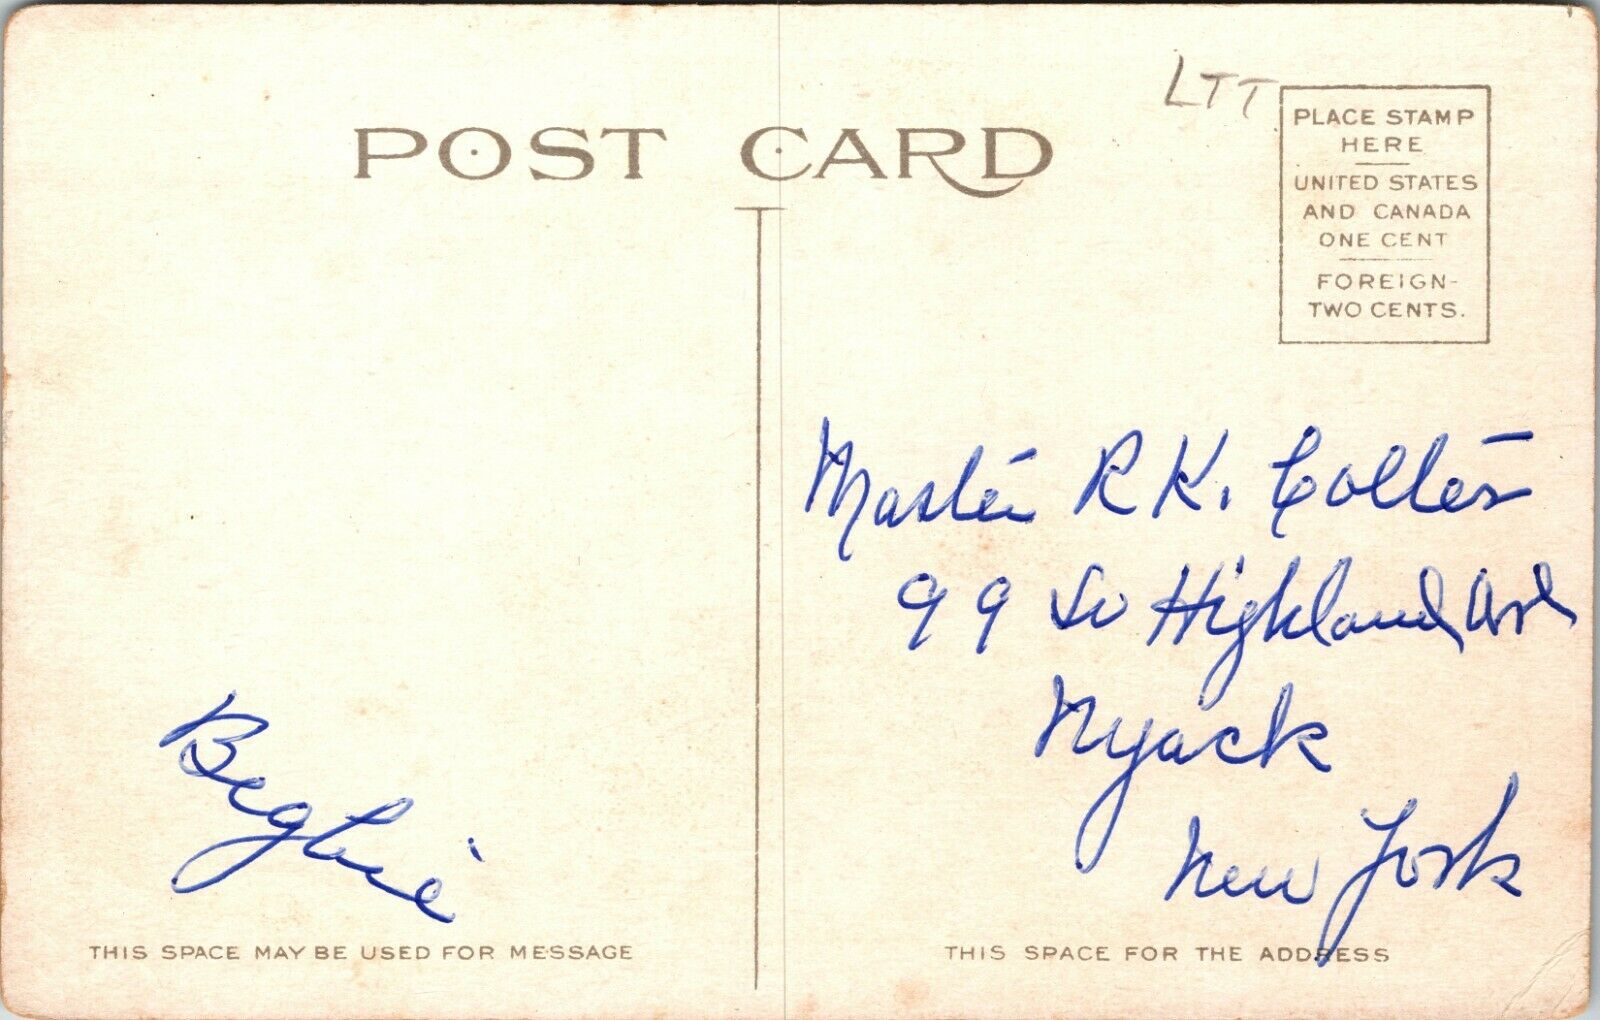 LTT
POST CARD
PLACE STAMP
HERE
UNITED STATES
AND CANADA
ONE CENT
FOREIGN-
TWO CENTS.
Master R K. Colter
99 So Highland Ave
Nyack
New York
Beglie
THIS SPACE MAY BE USED FOR MESSAGE
THIS SPACE FOR THE ADDRESS